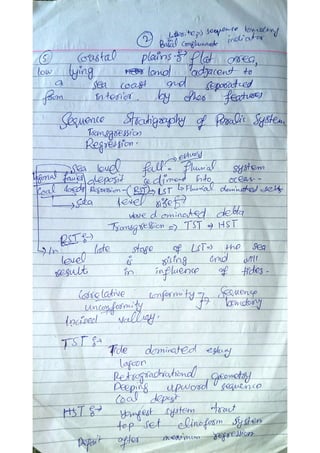 ② Lignite → sequence boundary
Basal conglomerate indicator
⑤ Coastal plains :→ flat area,
low lying land adjacent to
a sea coast and separated
from interior by other features
Sequence Stratigraphy of Paralic System
Transgression
Regression.
→ estuary
sea level fall - Fluvial system
deposit sediment into ocean.
Coal Regression - (RST) LST ↳ Fluvial dominated
→ sea level rise :→
wave dominated delta
Transgression ⇒ TST → HST
RST :→
→ In late stage of LST → the sea
level is rising and will
result in influence of tides.
Correlative conformity → Sequence
Unconformity → boundary
Incised valleys.
TST :→
Tide dominated estuary
lagoon
Retrogradational geometry
Deeping upword sequence
Coal deposit
HST :→ youngest system tract
top set clinoform system
Deposit after maximum regression